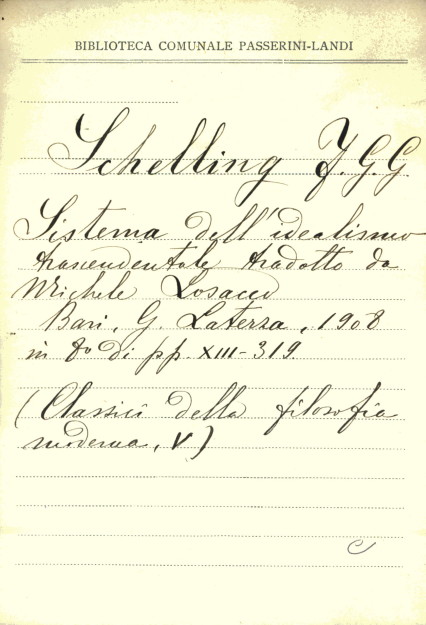 BIBLIOTECA COMUNALE PASSERINI-LANDI
Schelling F. G. G
Sistema dell'idealismo
trascendentale tradotto da
Michele Losacco
Bari, G. Laterza, 1908
in 8º di pp. XIII-319.
(Classici della filosofia
moderna, V)
C